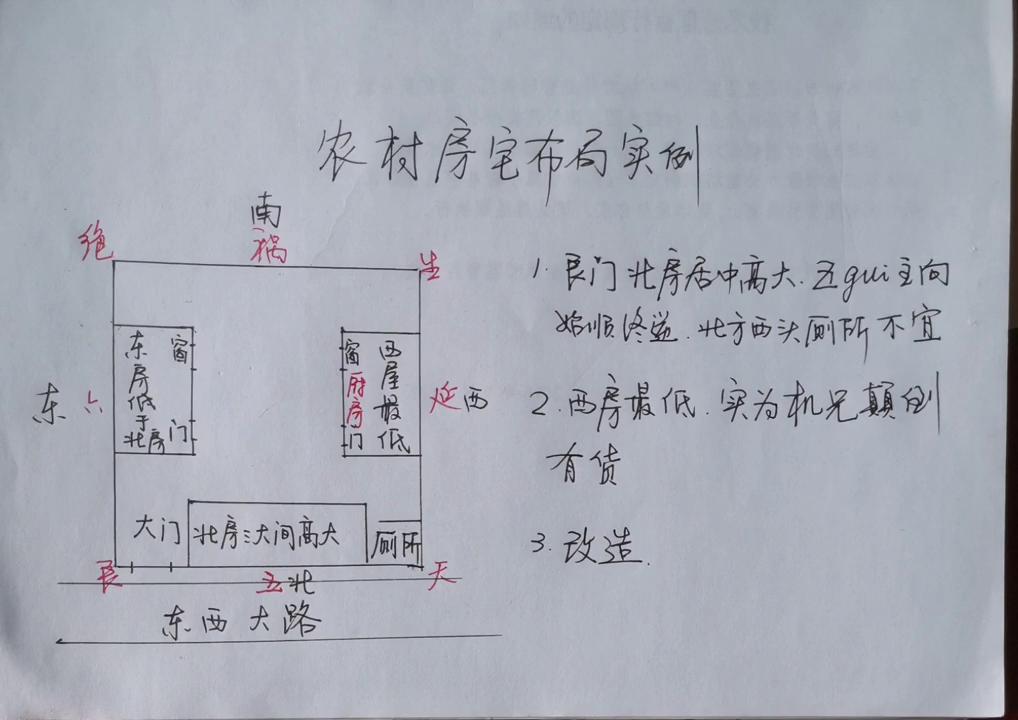 农村房宅布局实例
南
绝 祸 生
东房低于北房
窗
门
窗
厨房
门
西屋最低
东 六
延 西
大门
北房三大间高大
厕所
艮 五 北 天
东西大路
1. 艮门北房居中高大. 五gui主向
始顺终逆. 北方西头厕所不宜
2. 西房最低. 实为机兄颠倒
有货
3. 改造.